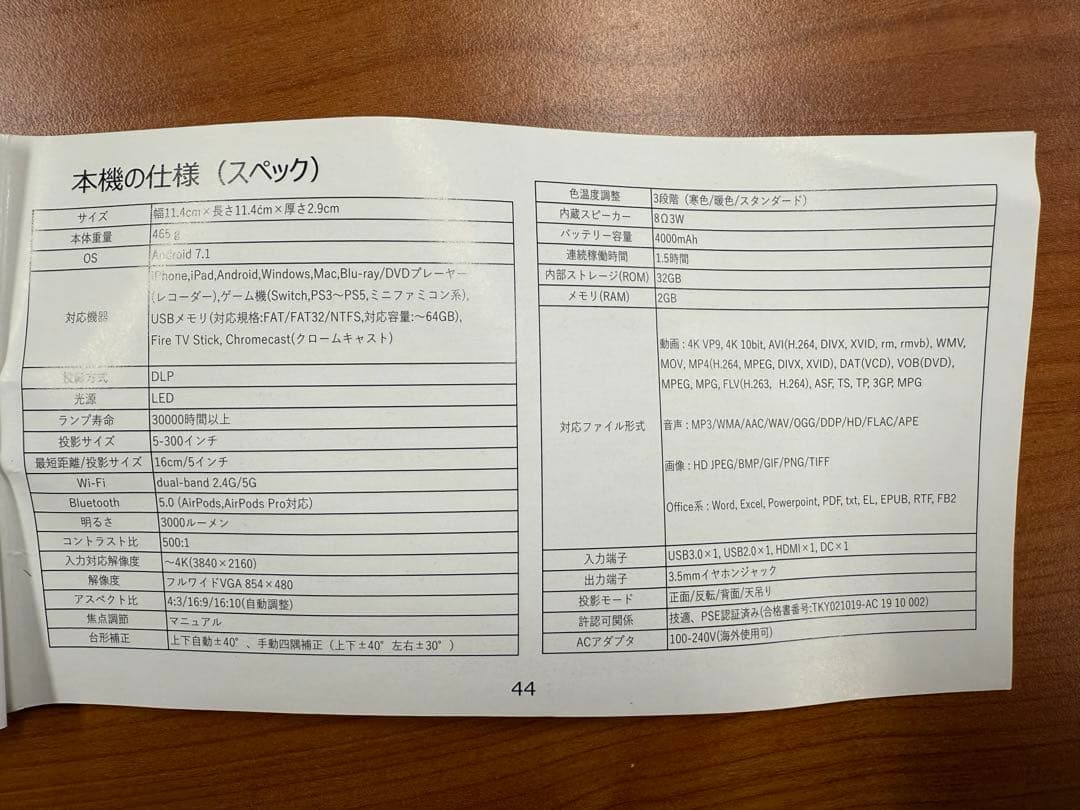 本機の仕様（スペック）
サイズ 幅11.4cm×長さ11.4cm×厚さ2.9cm
本体重量 465g
OS Android 7.1
対応機器 iPhone,iPad,Android,Windows,Mac,Blu-ray/DVDプレーヤー
(レコーダー),ゲーム機(Switch,PS3～PS5,ミニファミコン系),
USBメモリ(対応規格:FAT/FAT32/NTFS,対応容量:～64GB),
Fire TV Stick, Chromecast(クロームキャスト)
投影方式 DLP
光源 LED
ランプ寿命 30000時間以上
投影サイズ 5-300インチ
最短距離/投影サイズ 16cm/5インチ
Wi-Fi dual-band 2.4G/5G
Bluetooth 5.0 (AirPods,AirPods Pro対応)
明るさ 3000ルーメン
コントラスト比 500:1
入力対応解像度 ～4K(3840×2160)
解像度 フルワイドVGA 854×480
アスペクト比 4:3/16:9/16:10(自動調整)
焦点調節 マニュアル
台形補正 上下自動±40°、手動四隅補正（上下±40° 左右±30°）
色温度調整 3段階（寒色/暖色/スタンダード）
内蔵スピーカー 8Ω3W
バッテリー容量 4000mAh
連続稼働時間 1.5時間
内部ストレージ(ROM) 32GB
メモリ(RAM) 2GB
対応ファイル形式 動画 : 4K VP9, 4K 10bit, AVI(H.264, DIVX, XVID, rm, rmvb), WMV,
MOV, MP4(H.264, MPEG, DIVX, XVID), DAT(VCD), VOB(DVD),
MPEG, MPG, FLV(H.263, H.264), ASF, TS, TP, 3GP, MPG
音声 : MP3/WMA/AAC/WAV/OGG/DDP/HD/FLAC/APE
画像 : HD JPEG/BMP/GIF/PNG/TIFF
Office系 : Word, Excel, Powerpoint, PDF, txt, EL, EPUB, RTF, FB2
入力端子 USB3.0×1, USB2.0×1, HDMI×1, DC×1
出力端子 3.5mmイヤホンジャック
投影モード 正面/反転/背面/天吊り
許認可関係 技適、PSE認証済み(合格書番号:TKY021019-AC 19 10 002)
ACアダプタ 100-240V(海外使用可)
44